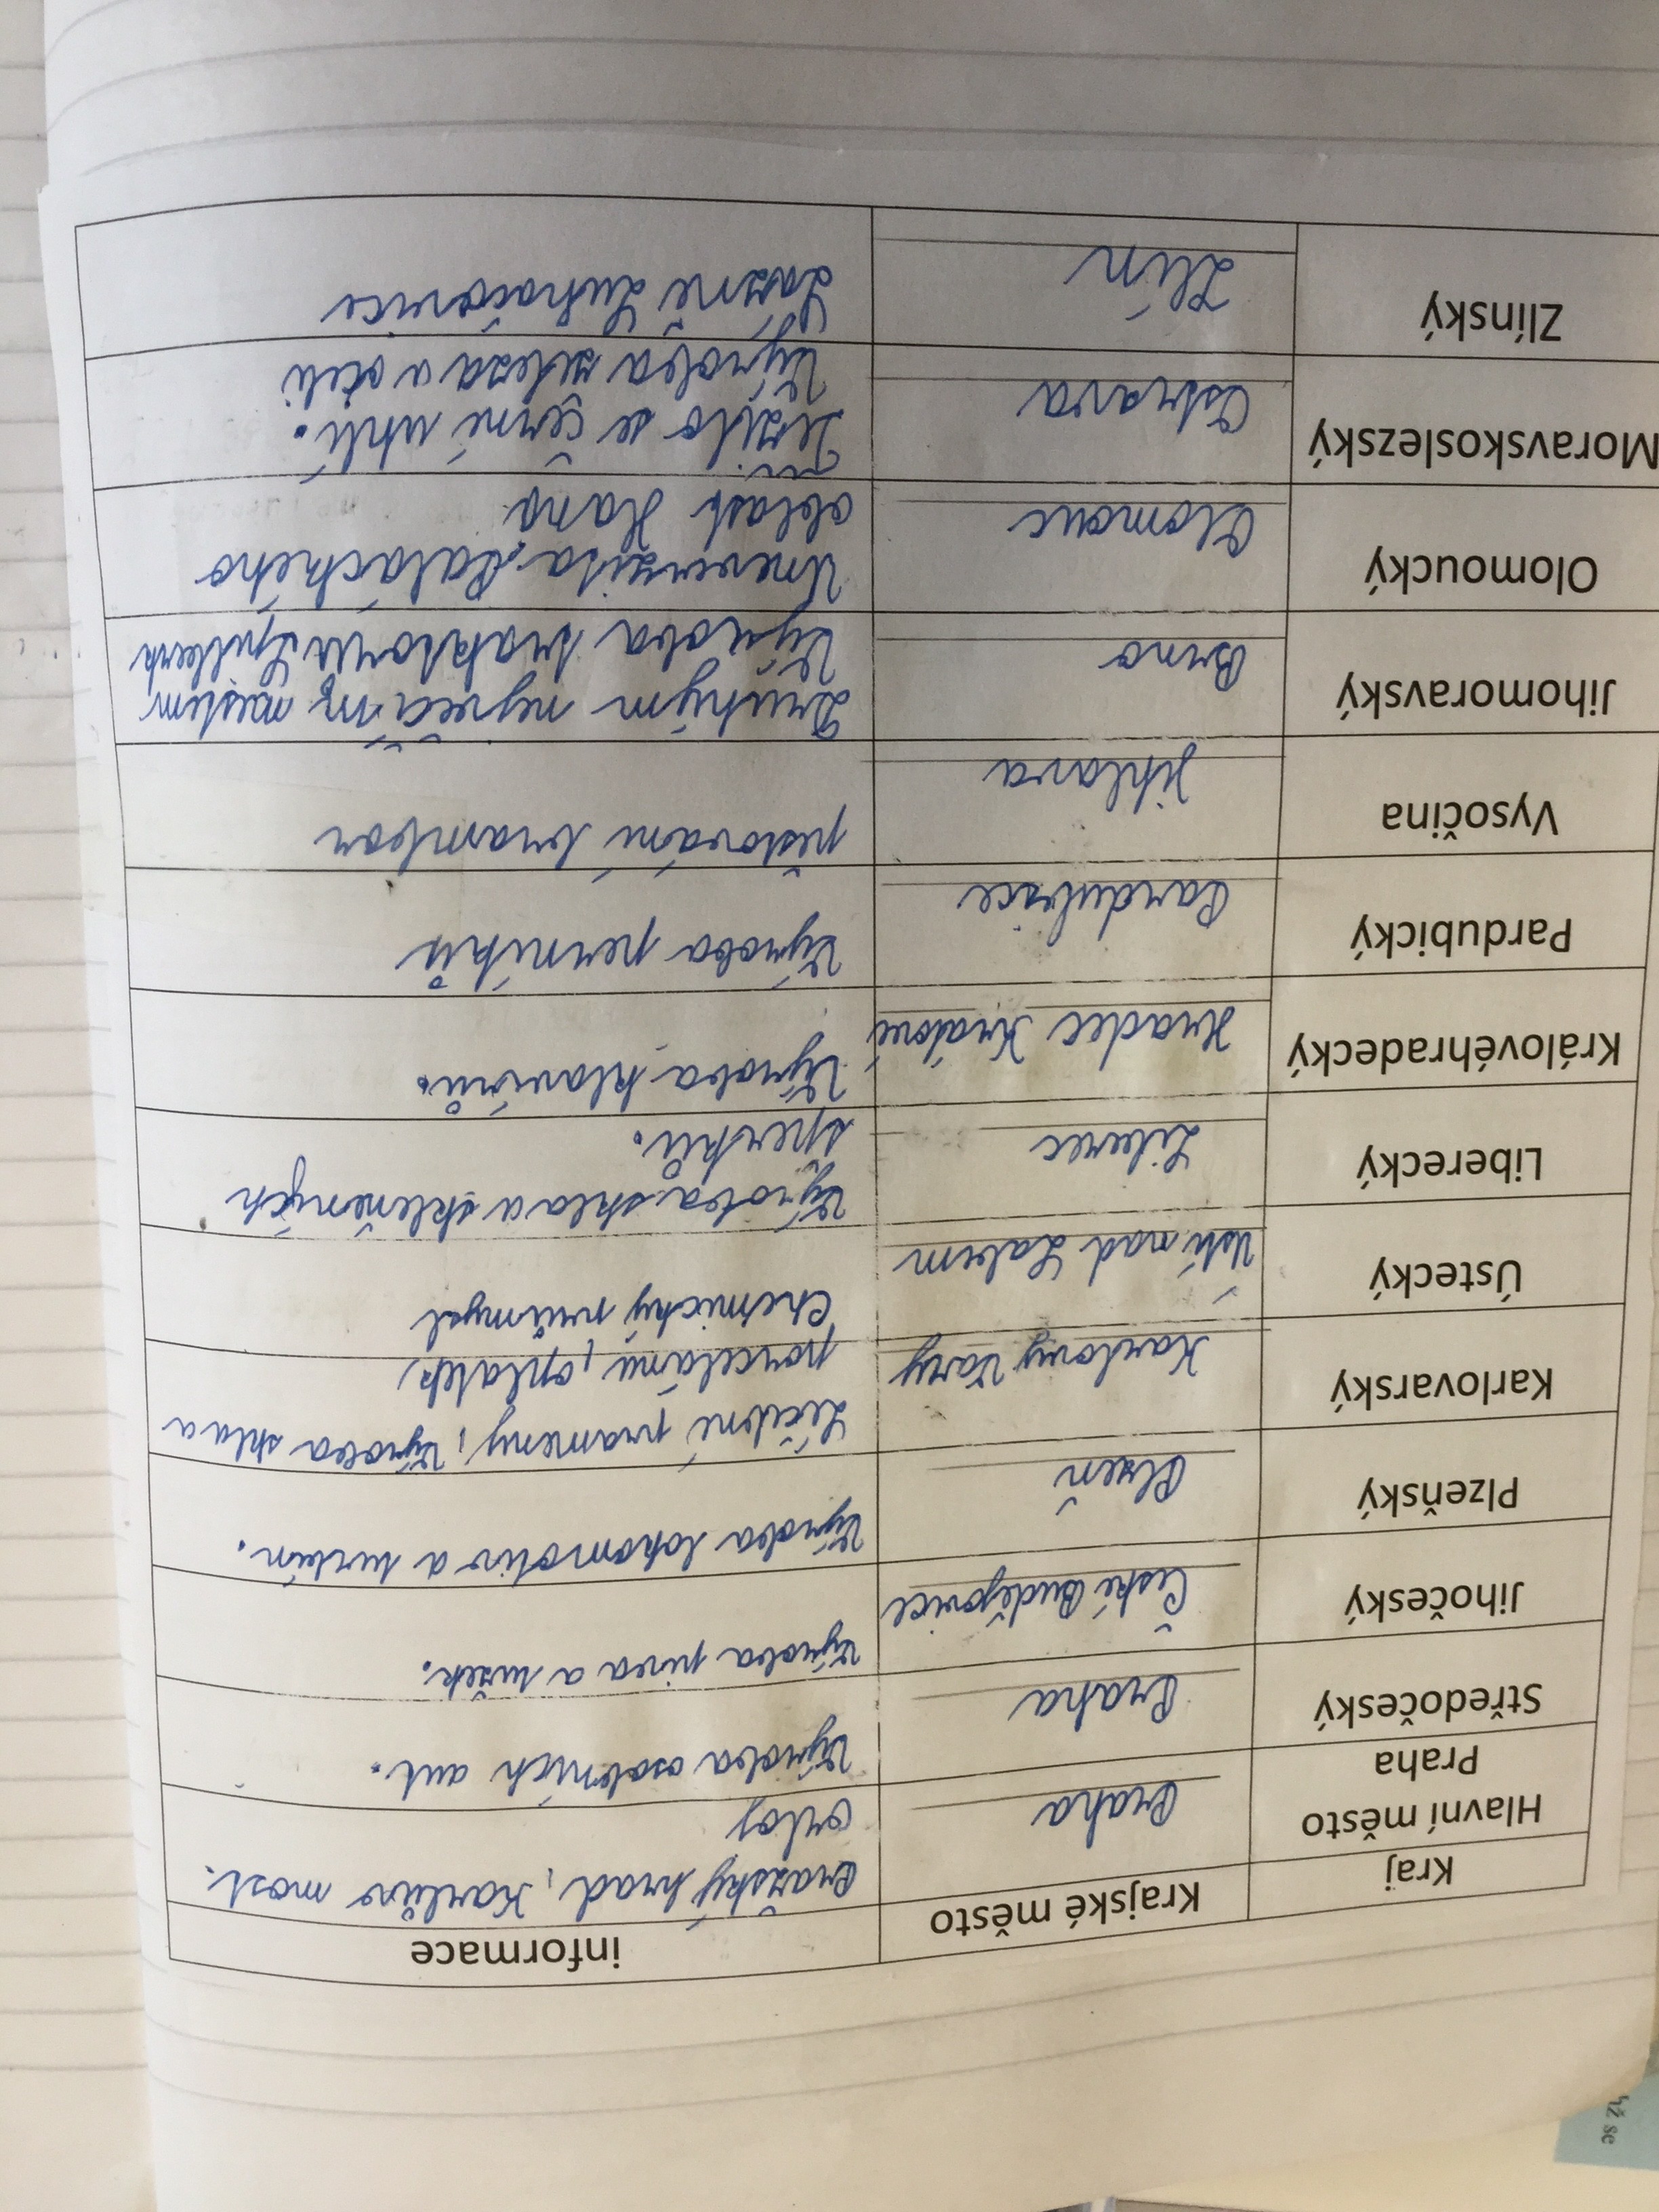 Kraj Krajské město informace
Hlavní město
Praha
Praha
Pražský hrad, Karlův most.
orloj
Středočeský
Praha
Výroba osobních aut.
Jihočeský
České Budějovice
Výroba piva a tužek.
Plzeňský
Plzeň
Výroba lokomotiv a turbín.
Karlovarský
Karlovy Vary
Léčebné prameny, Výroba skla a
porcelánu, oplatek,
Ústecký
Ústí nad Labem
Chemický průmysl
Liberecký
Liberec
Výroba skla a skleněných
šperků.
Královéhradecký
Hradec Králové
Výroba klavírů.
Pardubický
Pardubice
Výroba perníků
Vysočina
Jihlava
pěstování brambor
Jihomoravský
Brno
Druhým největším městem
Výroba traktorů Špilberk
Olomoucký
Olomouc
Univerzita Palackého
oblast Haná
Moravskoslezský
Ostrava
Těžilo se černé uhlí.
Výroba železa a oceli
Zlínský
Zlín
Lázně Luhačovice
už se